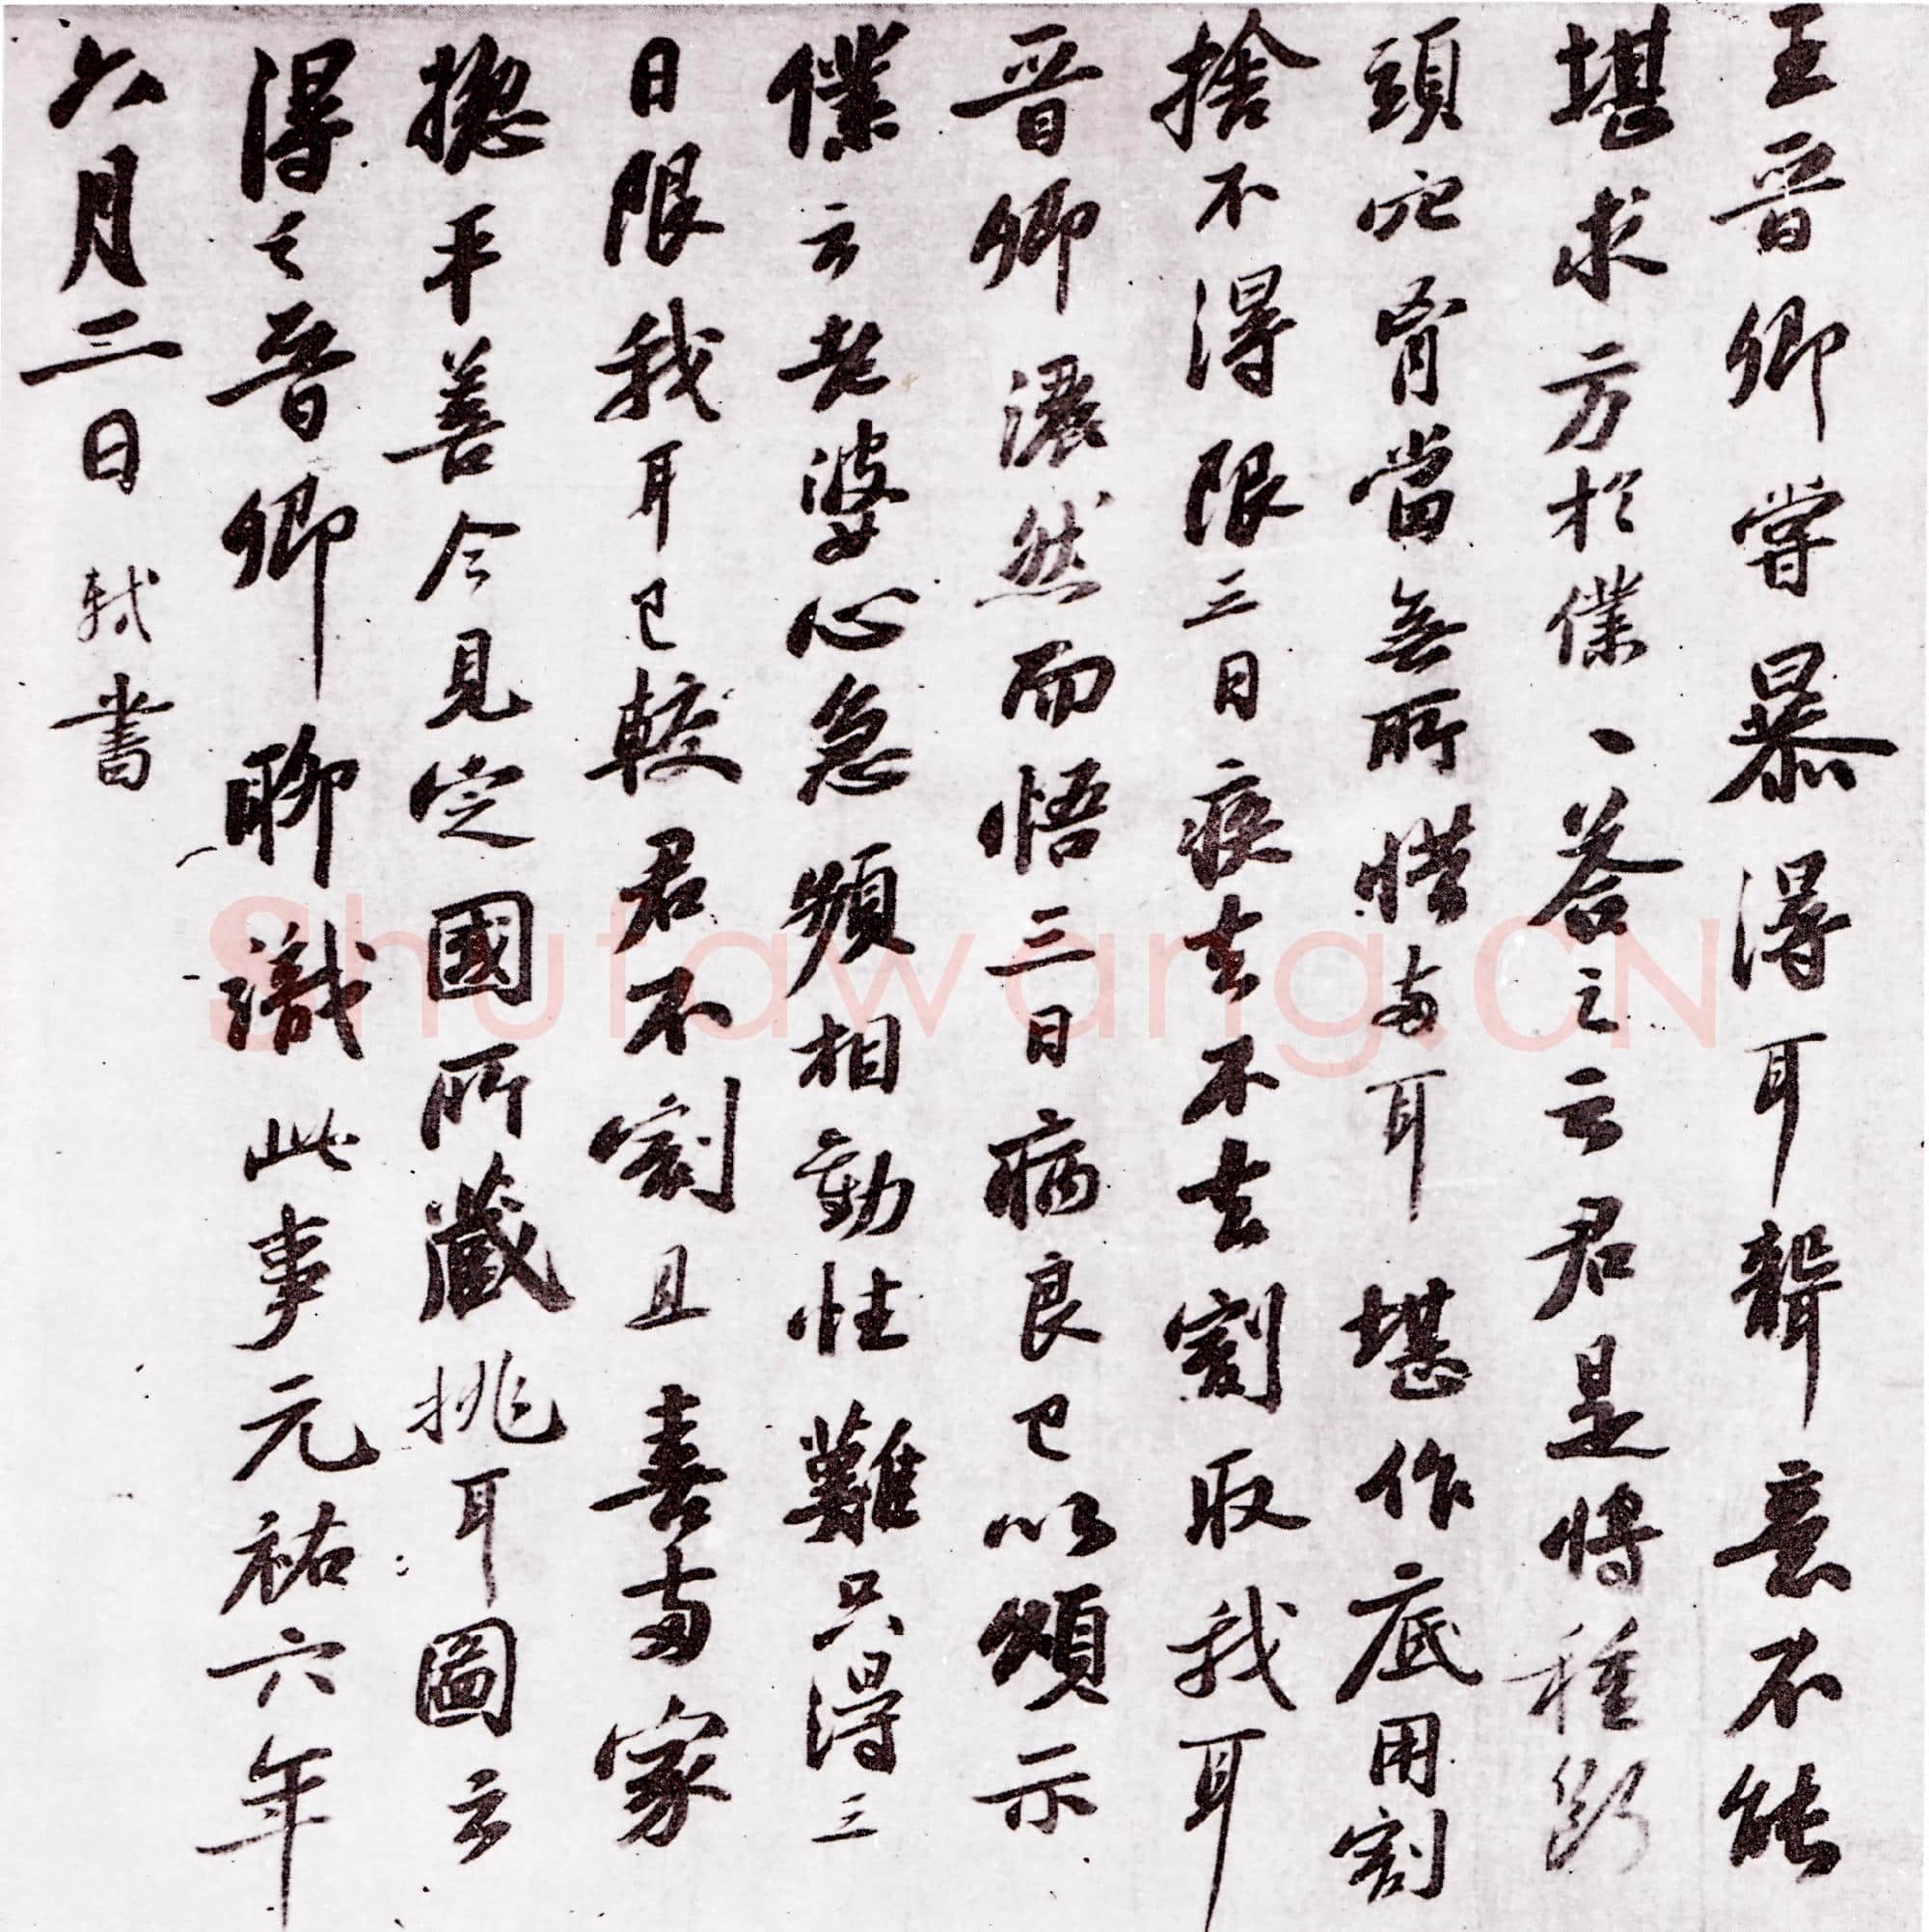 王晉卿嘗暴得耳聾意不能
堪求方於僕、答之云君是將種斷
頭穴胷當無所惜兩耳堪作底用割
捨不得限三日疾去不去割取我耳
晉卿灑然而悟三日病良已以頌示
僕云老婆心急頻相勸性難只得三
日限我耳已較君不割且喜兩家
揔平善今見定國所藏挑耳圖云
得之晉卿聊識此事元祐六年
六月二日軾書
Shufawang.CN